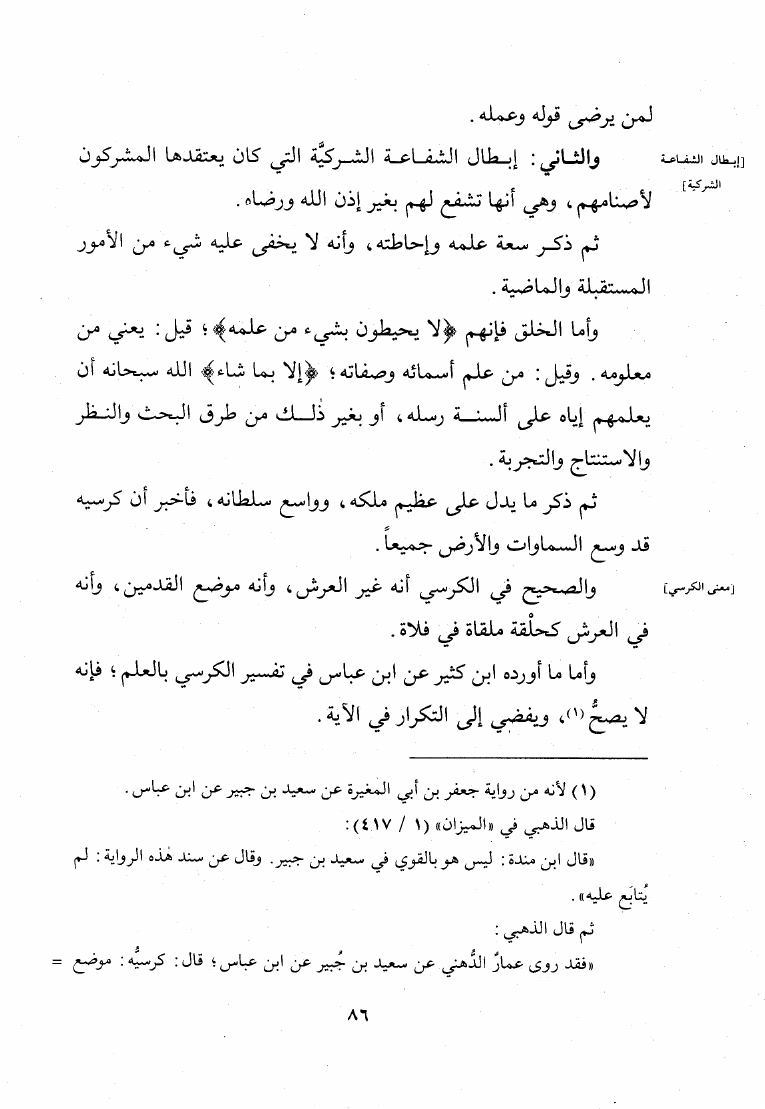 لمن يرضى قوله وعمله .
[إبطال الشفاعة
الشركية]
والثاني : إبطال الشفاعة الشركيَّة التي كان يعتقدها المشركون
لأصنامهم، وهي أنها تشفع لهم بغير إذن الله ورضاه.
ثم ذكر سعة علمه وإحاطته، وأنه لا يخفى عليه شيء من الأمور
المستقبلة والماضية .
وأما الخلق فإنهم ﴿لا يحيطون بشيء من علمه﴾؛ قيل : يعني من
معلومه . وقيل : من علم أسمائه وصفاته؛ ﴿إلا بما شاء﴾ الله سبحانه أن
يعلمهم إياه على ألسنة رسله، أو بغير ذٰلك من طرق البحث والنظر
والاستنتاج والتجربة .
ثم ذكر ما يدل على عظيم ملكه، وواسع سلطانه، فأخبر أن كرسيه
قد وسع السماوات والأرض جميعاً .
[معنى الكرسي]
والصحيح في الكرسي أنه غير العرش، وأنه موضع القدمين، وأنه
في العرش كحلْقة ملقاة في فلاة .
وأما ما أورده ابن كثير عن ابن عباس في تفسير الكرسي بالعلم؛ فإنه
لا يصحُّ(١)، ويفضي إلى التكرار في الآية .
(١) لأنه من رواية جعفر بن أبي المغيرة عن سعيد بن جبير عن ابن عباس .
قال الذهبي في «الميزان» (١ / ٤١٧) :
«قال ابن مندة : ليس هو بالقوي في سعيد بن جبير. وقال عن سند هٰذه الرواية : لم
يُتابَع عليه» .
ثم قال الذهبي :
«فقد روى عمارٌ الدُّهني عن سعيد بن جُبير عن ابن عباس؛ قال : كرسيُّه : موضع =
٨٦